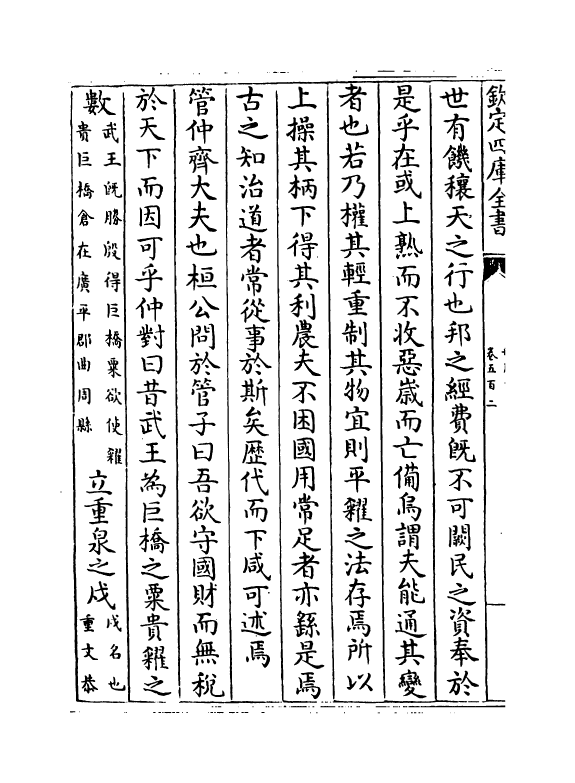 欽定四庫全書
卷五百二
世有饑穰天之行也邦之經費既不可闕民之資奉於
是乎在或上熟而不收惡歲而亡備烏謂夫能通其變
者也若乃權其輕重制其物宜則平糴之法存焉所以
上操其柄下得其利農夫不困國用常足者亦繇是焉
古之知治道者常從事於斯矣歷代而下咸可述焉
管仲齊大夫也桓公問於管子曰吾欲守國財而無稅
於天下而因可乎仲對曰昔武王為巨橋之粟貴糴之
數武王既勝殷得巨橋粟欲使糴貴巨橋倉在廣平郡曲周縣立重泉之戍戍名也重丈恭